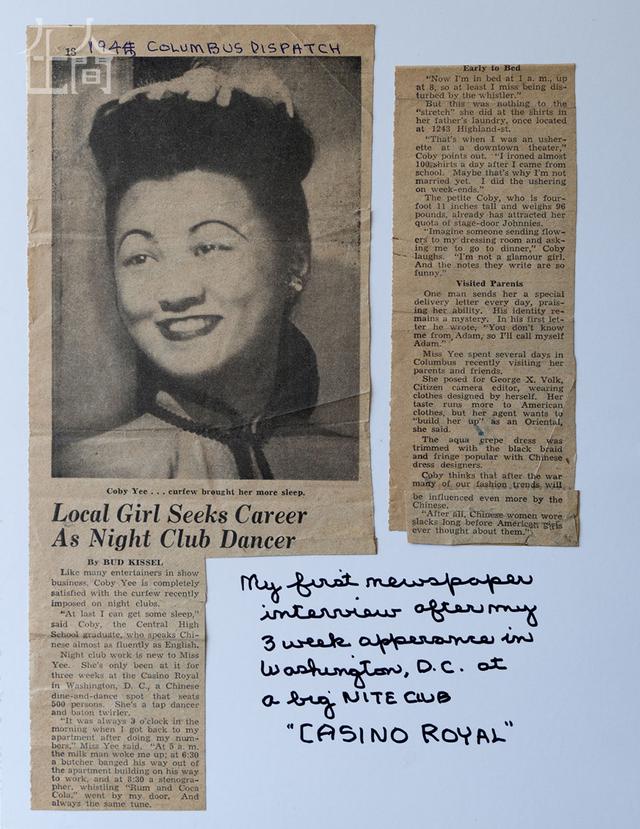 COLUMBUS DISPATCH
Coby Yee . . . curfew brought her more sleep.
Local Girl Seeks Career
As Night Club Dancer
By BUD KISSEL
Like many entertainers in show
business, Coby Yee is completely
satisfied with the curfew recently
imposed on night clubs.
"At last I can get some sleep,"
said Coby, the Central High
School graduate, who speaks Chi-
nese almost as fluently as English.
Night club work is new to Miss
Yee. She's only been at it for
three weeks at the Casino Royal
in Washington, D. C., a Chinese
dine-and-dance spot that seats
500 persons. She's a tap dancer
and baton twirler.
"It was always 3 o'clock in the
morning when I got back to my
apartment after doing my num-
bers," Miss Yee said. "At 5 a. m.
the milk man woke me up; at 6:30
a butcher banged his way out of
the apartment building on his way
to work, and at 8:30 a stenogra-
pher, whistling "Rum and Coca
Cola," went by my door. And
always the same tune.
Early to Bed
"Now I'm in bed at 1 a. m., up
at 8, so at least I miss being dis-
turbed by the whistler."
But this was nothing to the
"stretch" she did at the shirts in
her father's laundry, once located
at 1243 Highland-st.
"That's when I was an usher-
ette at a downtown theater,"
Coby points out. "I ironed almost
100 shirts a day after I came from
school. Maybe that's why I'm not
married yet. I did the ushering
on week-ends."
The petite Coby, who is four-
foot 11 inches tall and weighs 96
pounds, already has attracted her
quota of stage-door Johnnies.
"Imagine someone sending flow-
ers to my dressing room and ask-
ing me to go to dinner," Coby
laughs. "I'm not a glamour girl.
And the notes they write are so
funny."
Visited Parents
One man sends her a special
delivery letter every day, prais-
ing her ability. His identity re-
mains a mystery. In his first let-
ter he wrote, "You don't know
me from Adam, so I'll call myself
Adam."
Miss Yee spent several days in
Columbus recently visiting her
parents and friends.
She posed for George X. Volk,
Citizen camera editor, wearing
clothes designed by herself. Her
taste runs more to American
clothes, but her agent wants to
"build her up" as an Oriental,
she said.
The aqua crepe dress was
trimmed with the black braid
and fringe popular with Chinese
dress designers.
Coby thinks that after the war
many of our fashion trends will
be influenced even more by the
Chinese.
"After all, Chinese women wore
slacks long before American girls
ever thought about them."
My first newspaper
interview after my
3 week apperance in
Washington, D.C. at
a big NITE CLUB
"CASINO ROYAL"